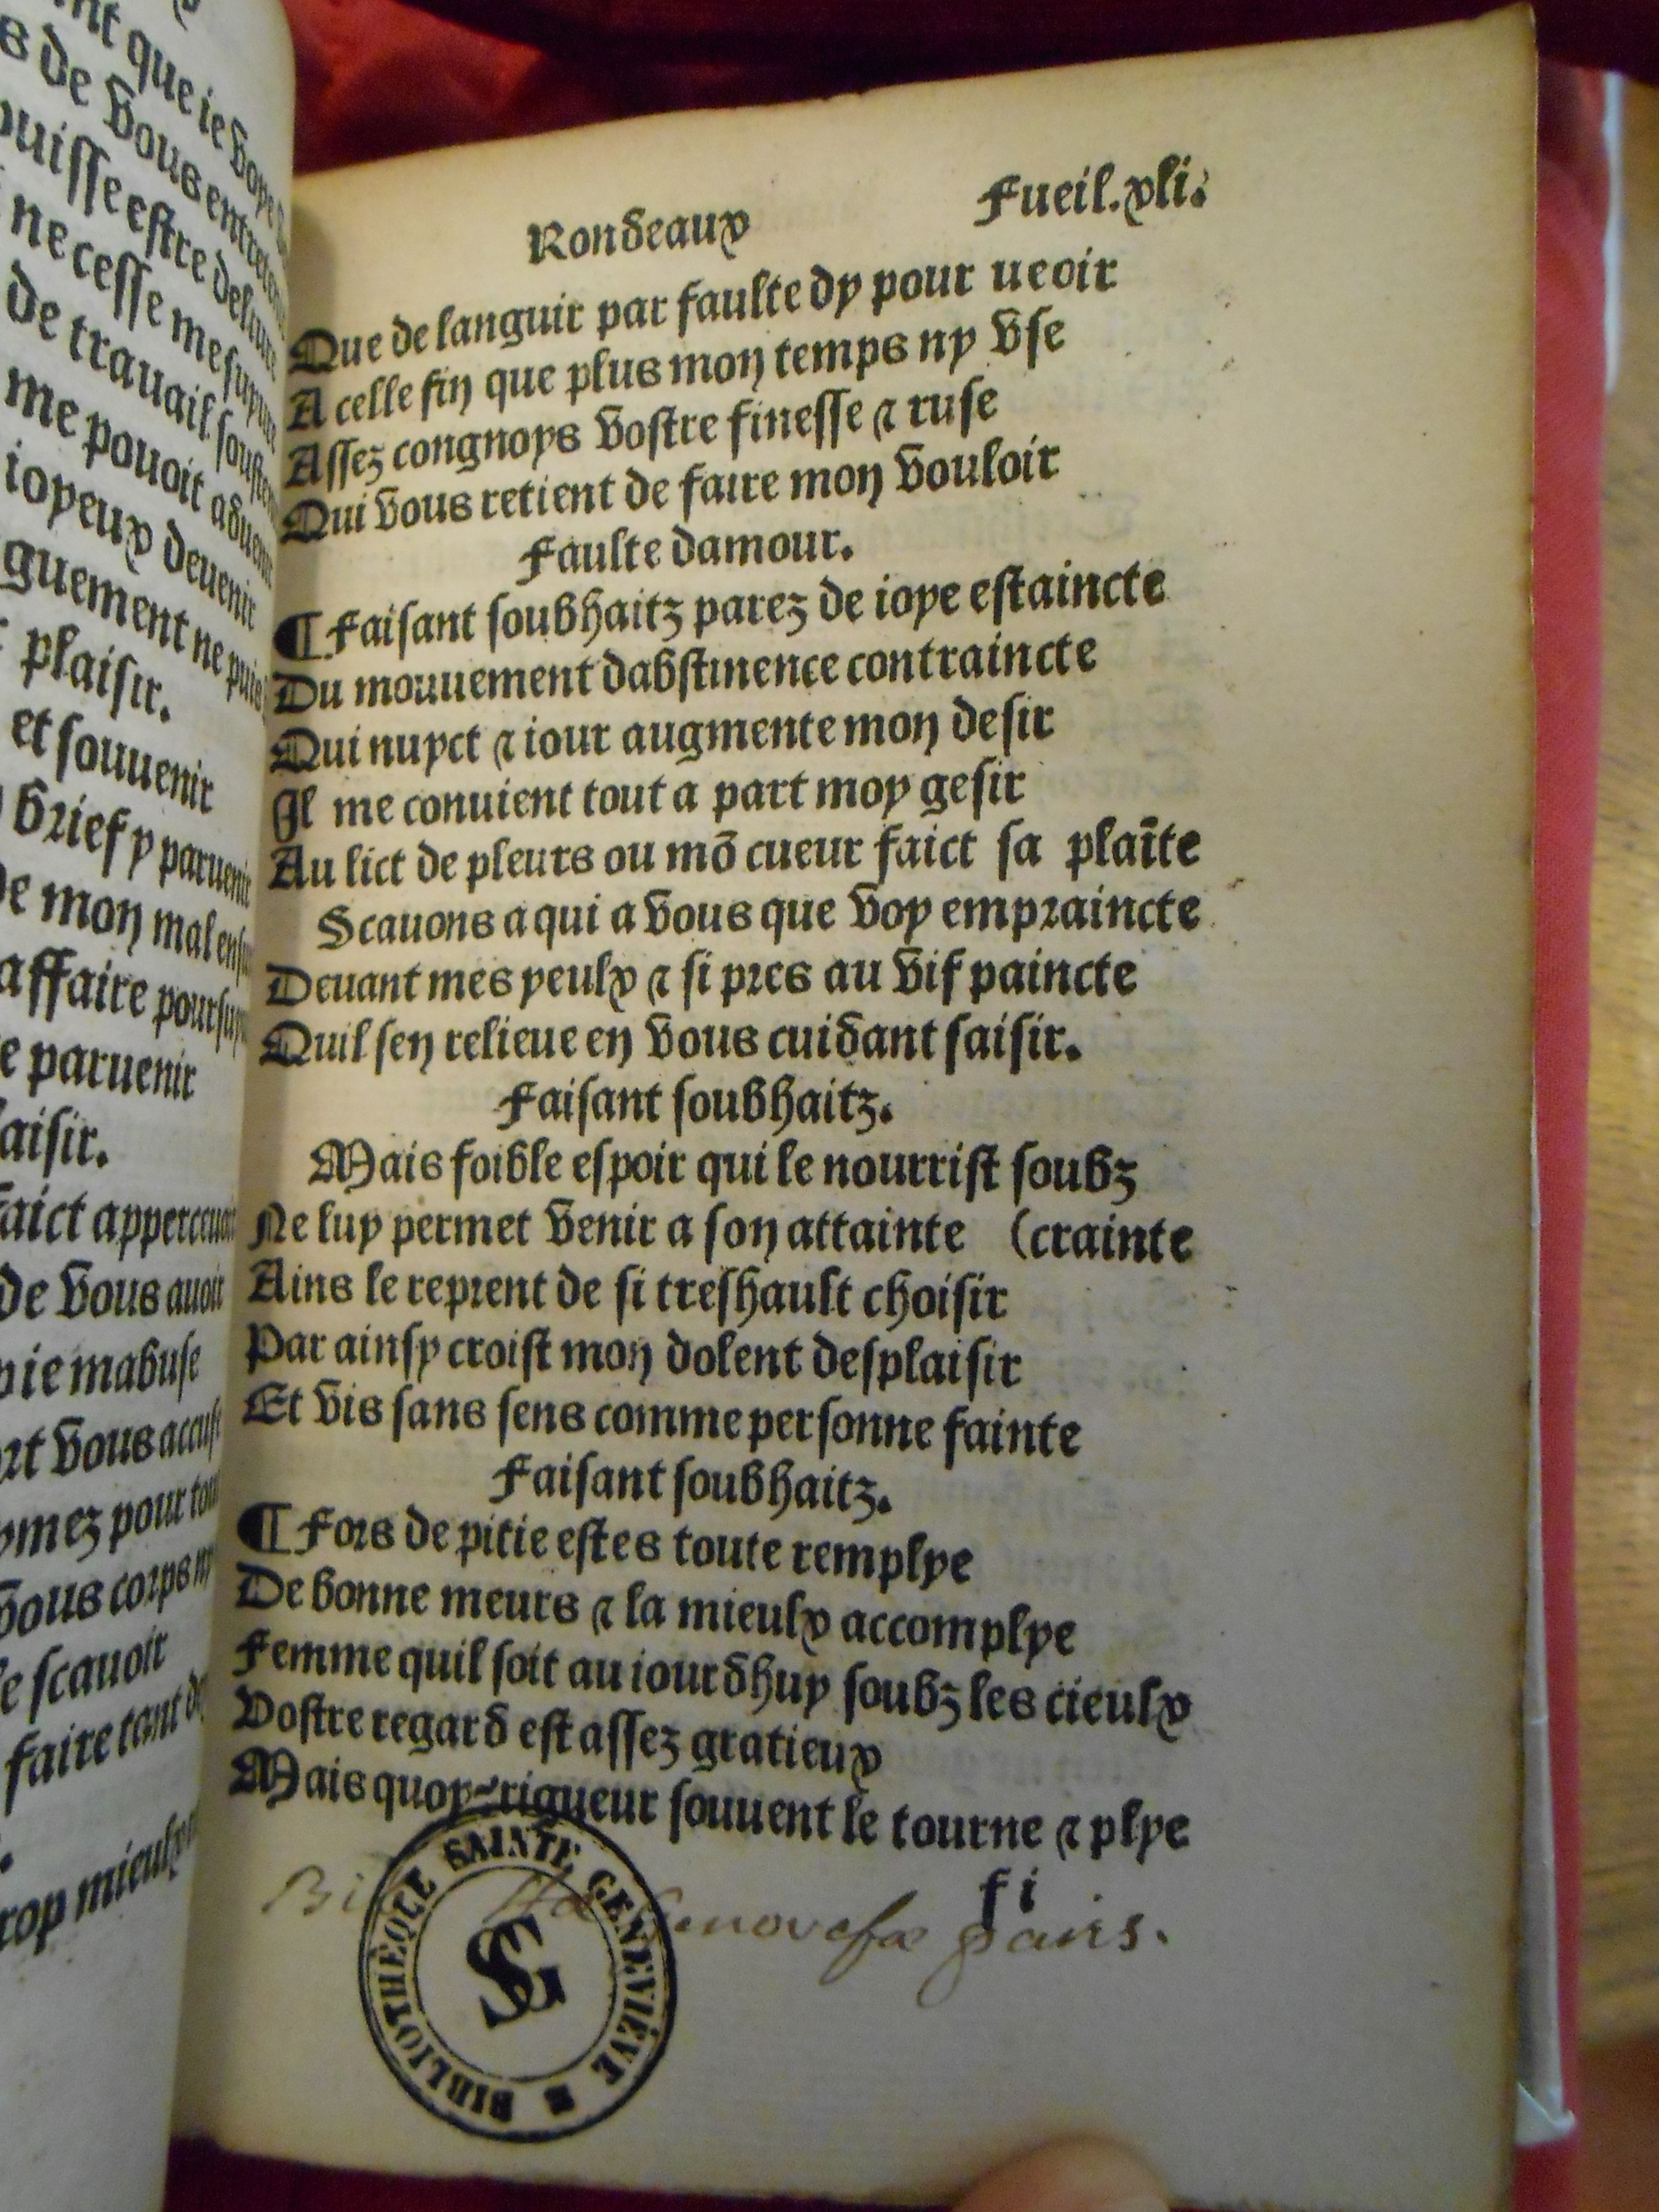 nt que ie voye
s de vous entreten
puisse estre deliure
ne cesse me
de trauail
me pouoit
ioyeux deuenir
guement ne puis
plaisir.
et souuenir
brief y paruenir
de mon mal
affaire
e paruenir
aisir.
faict
de vous auoir
ie mabuse
ort vous
ymez pour
vous corps
le scauoir
faire tant
trop mieulx
Rondeaux Fueil.xli.
Que de languir par faulte dy pour ueoir
A celle fin que plus mon temps ny vse
Assez congnoys vostre finesse ⁊ ruse
Qui vous retient de faire mon vouloir
Faulte damour.
¶Faisant soubhaitz parez de ioye estaincte
Du mouuement dabstinence contraincte
Qui nuyct ⁊ iour augmente mon desir
Il me conuient tout a part moy gesir
Au lict de pleurs ou mõ cueur faict sa plaīte
Scauons a qui a vous que voy empraincte
Deuant mes yeulx ⁊ si pres au vif paincte
Quil sen relieue en vous cuidant saisir.
Faisant soubhaitz.
Mais foible espoir qui le nourrist soubz
Ne luy permet venir a son attainte (crainte
Ains le reprent de si treshault choisir
Par ainsy croist mon dolent desplaisir
Et vis sans sens comme personne fainte
Faisant soubhaitz.
¶Fors de pitie estes toute remplye
De bonne meurs ⁊ la mieulx accomplye
Femme quil soit au iourdhuy soubz les cieulx
Vostre regard est assez gratieux
Mais quoy rigueur souuent le tourne ⁊ plye
f i
BIBLIOTHÈQUE SAINTE GENEVIÈVE
SG